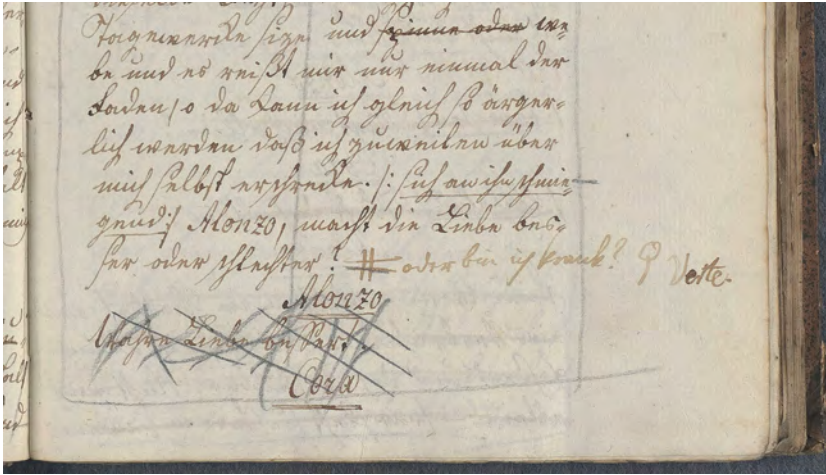 Tagewerke size und spinne oder we¬
be und es reißt mir nur einmal der
Faden, o da kann ich gleich so ärger¬
lich werden daß ich zuweilen über
mich selbst erschrecke. /: sich an ihn schmie¬
gend :/ Alonzo, macht die Liebe bes¬
ser oder schlechter? oder bin ich krank?
Verte.
Alonzo
Wahre Liebe bessert.
Cora